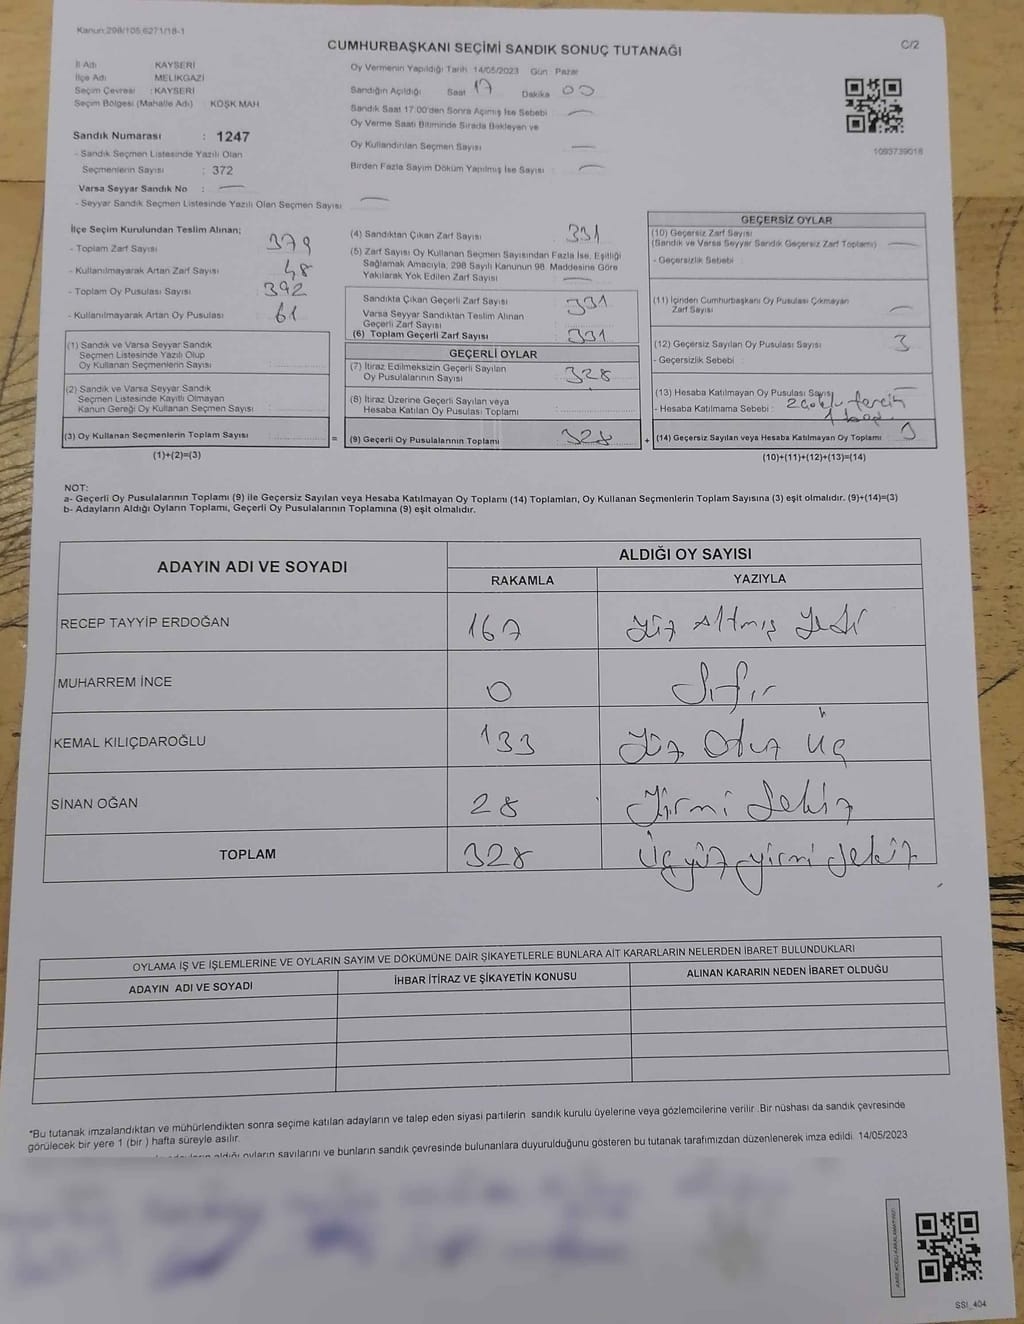 Kanun:298/105,6271/18-1
CUMHURBAŞKANI SEÇİMİ SANDIK SONUÇ TUTANAĞI
C/2
İl Adı KAYSERİ
İlçe Adı MELİKGAZİ
Seçim Çevresi : KAYSERİ
Seçim Bölgesi (Mahalle Adı) : KÖŞK MAH
Sandık Numarası : 1247
- Sandık Seçmen Listesinde Yazılı Olan
Seçmenlerin Sayısı : 372
Varsa Seyyar Sandık No :
- Seyyar Sandık Seçmen Listesinde Yazılı Olan Seçmen Sayısı
Oy Vermenin Yapıldığı Tarih 14/05/2023 Gün : Pazar
Sandığın Açıldığı Saat 17 Dakika 00
Sandık Saat 17:00'den Sonra Açılmış İse Sebebi
Oy Verme Saati Bitiminde Sırada Bekleyen ve
Oy Kullandırılan Seçmen Sayısı
Birden Fazla Sayım Döküm Yapılmış İse Sayısı
1093739018
İlçe Seçim Kurulundan Teslim Alınan;
- Toplam Zarf Sayısı 379
- Kullanılmayarak Artan Zarf Sayısı 48
- Toplam Oy Pusulası Sayısı 392
- Kullanılmayarak Artan Oy Pusulası 61
(1) Sandık ve Varsa Seyyar Sandık
Seçmen Listesinde Yazılı Olup
Oy Kullanan Seçmenlerin Sayısı
(2) Sandık ve Varsa Seyyar Sandık
Seçmen Listesinde Kayıtlı Olmayan
Kanun Gereği Oy Kullanan Seçmen Sayısı
(3) Oy Kullanan Seçmenlerin Toplam Sayısı
(1)+(2)=(3)
=
(4) Sandıktan Çıkan Zarf Sayısı 331
(5) Zarf Sayısı Oy Kullanan Seçmen Sayısından Fazla İse, Eşitliği
Sağlamak Amacıyla, 298 Sayılı Kanunun 98. Maddesine Göre
Yakılarak Yok Edilen Zarf Sayısı
Sandıkta Çıkan Geçerli Zarf Sayısı 331
Varsa Seyyar Sandıktan Teslim Alınan
Geçerli Zarf Sayısı
(6) Toplam Geçerli Zarf Sayısı 331
GEÇERLİ OYLAR
(7) İtiraz Edilmeksizin Geçerli Sayılan
Oy Pusulalarının Sayısı 328
(8) İtiraz Üzerine Geçerli Sayılan veya
Hesaba Katılan Oy Pusulası Toplamı
(9) Geçerli Oy Pusulalarının Toplamı 328
+
GEÇERSİZ OYLAR
(10) Geçersiz Zarf Sayısı
(Sandık ve Varsa Seyyar Sandık Geçersiz Zarf Toplamı)
- Geçersizlik Sebebi :
(11) İçinden Cumhurbaşkanı Oy Pusulası Çıkmayan
Zarf Sayısı
(12) Geçersiz Sayılan Oy Pusulası Sayısı 3
- Geçersizlik Sebebi :
(13) Hesaba Katılmayan Oy Pusulası Sayısı
- Hesaba Katılmama Sebebi : 2 çoklu tercih
1 boş
(14) Geçersiz Sayılan veya Hesaba Katılmayan Oy Toplamı 3
(10)+(11)+(12)+(13)=(14)
NOT:
a- Geçerli Oy Pusulalarının Toplamı (9) ile Geçersiz Sayılan veya Hesaba Katılmayan Oy Toplamı (14) Toplamları, Oy Kullanan Seçmenlerin Toplam Sayısına (3) eşit olmalıdır. (9)+(14)=(3)
b- Adayların Aldığı Oyların Toplamı, Geçerli Oy Pusulalarının Toplamına (9) eşit olmalıdır.
ADAYIN ADI VE SOYADI
ALDIĞI OY SAYISI
RAKAMLA YAZIYLA
RECEP TAYYİP ERDOĞAN 167 Yüz Altmış Yedi
MUHARREM İNCE 0 Sıfır
KEMAL KILIÇDAROĞLU 133 Yüz Otuz Üç
SİNAN OĞAN 28 Yirmi Sekiz
TOPLAM 328 Üçyüz yirmi sekiz
OYLAMA İŞ VE İŞLEMLERİNE VE OYLARIN SAYIM VE DÖKÜMÜNE DAİR ŞİKAYETLERLE BUNLARA AİT KARARLARIN NELERDEN İBARET BULUNDUKLARI
ADAYIN ADI VE SOYADI İHBAR İTİRAZ VE ŞİKAYETİN KONUSU ALINAN KARARIN NEDEN İBARET OLDUĞU
*Bu tutanak imzalandıktan ve mühürlendikten sonra seçime katılan adayların ve talep eden siyasi partilerin sandık kurulu üyelerine veya gözlemcilerine verilir .Bir nüshası da sandık çevresinde
görülecek bir yere 1 (bir ) hafta süreyle asılır.
aldığı oyların sayılarını ve bunların sandık çevresinde bulunanlara duyurulduğunu gösteren bu tutanak tarafımızdan düzenlenerek imza edildi. 14/05/2023
SSI_404